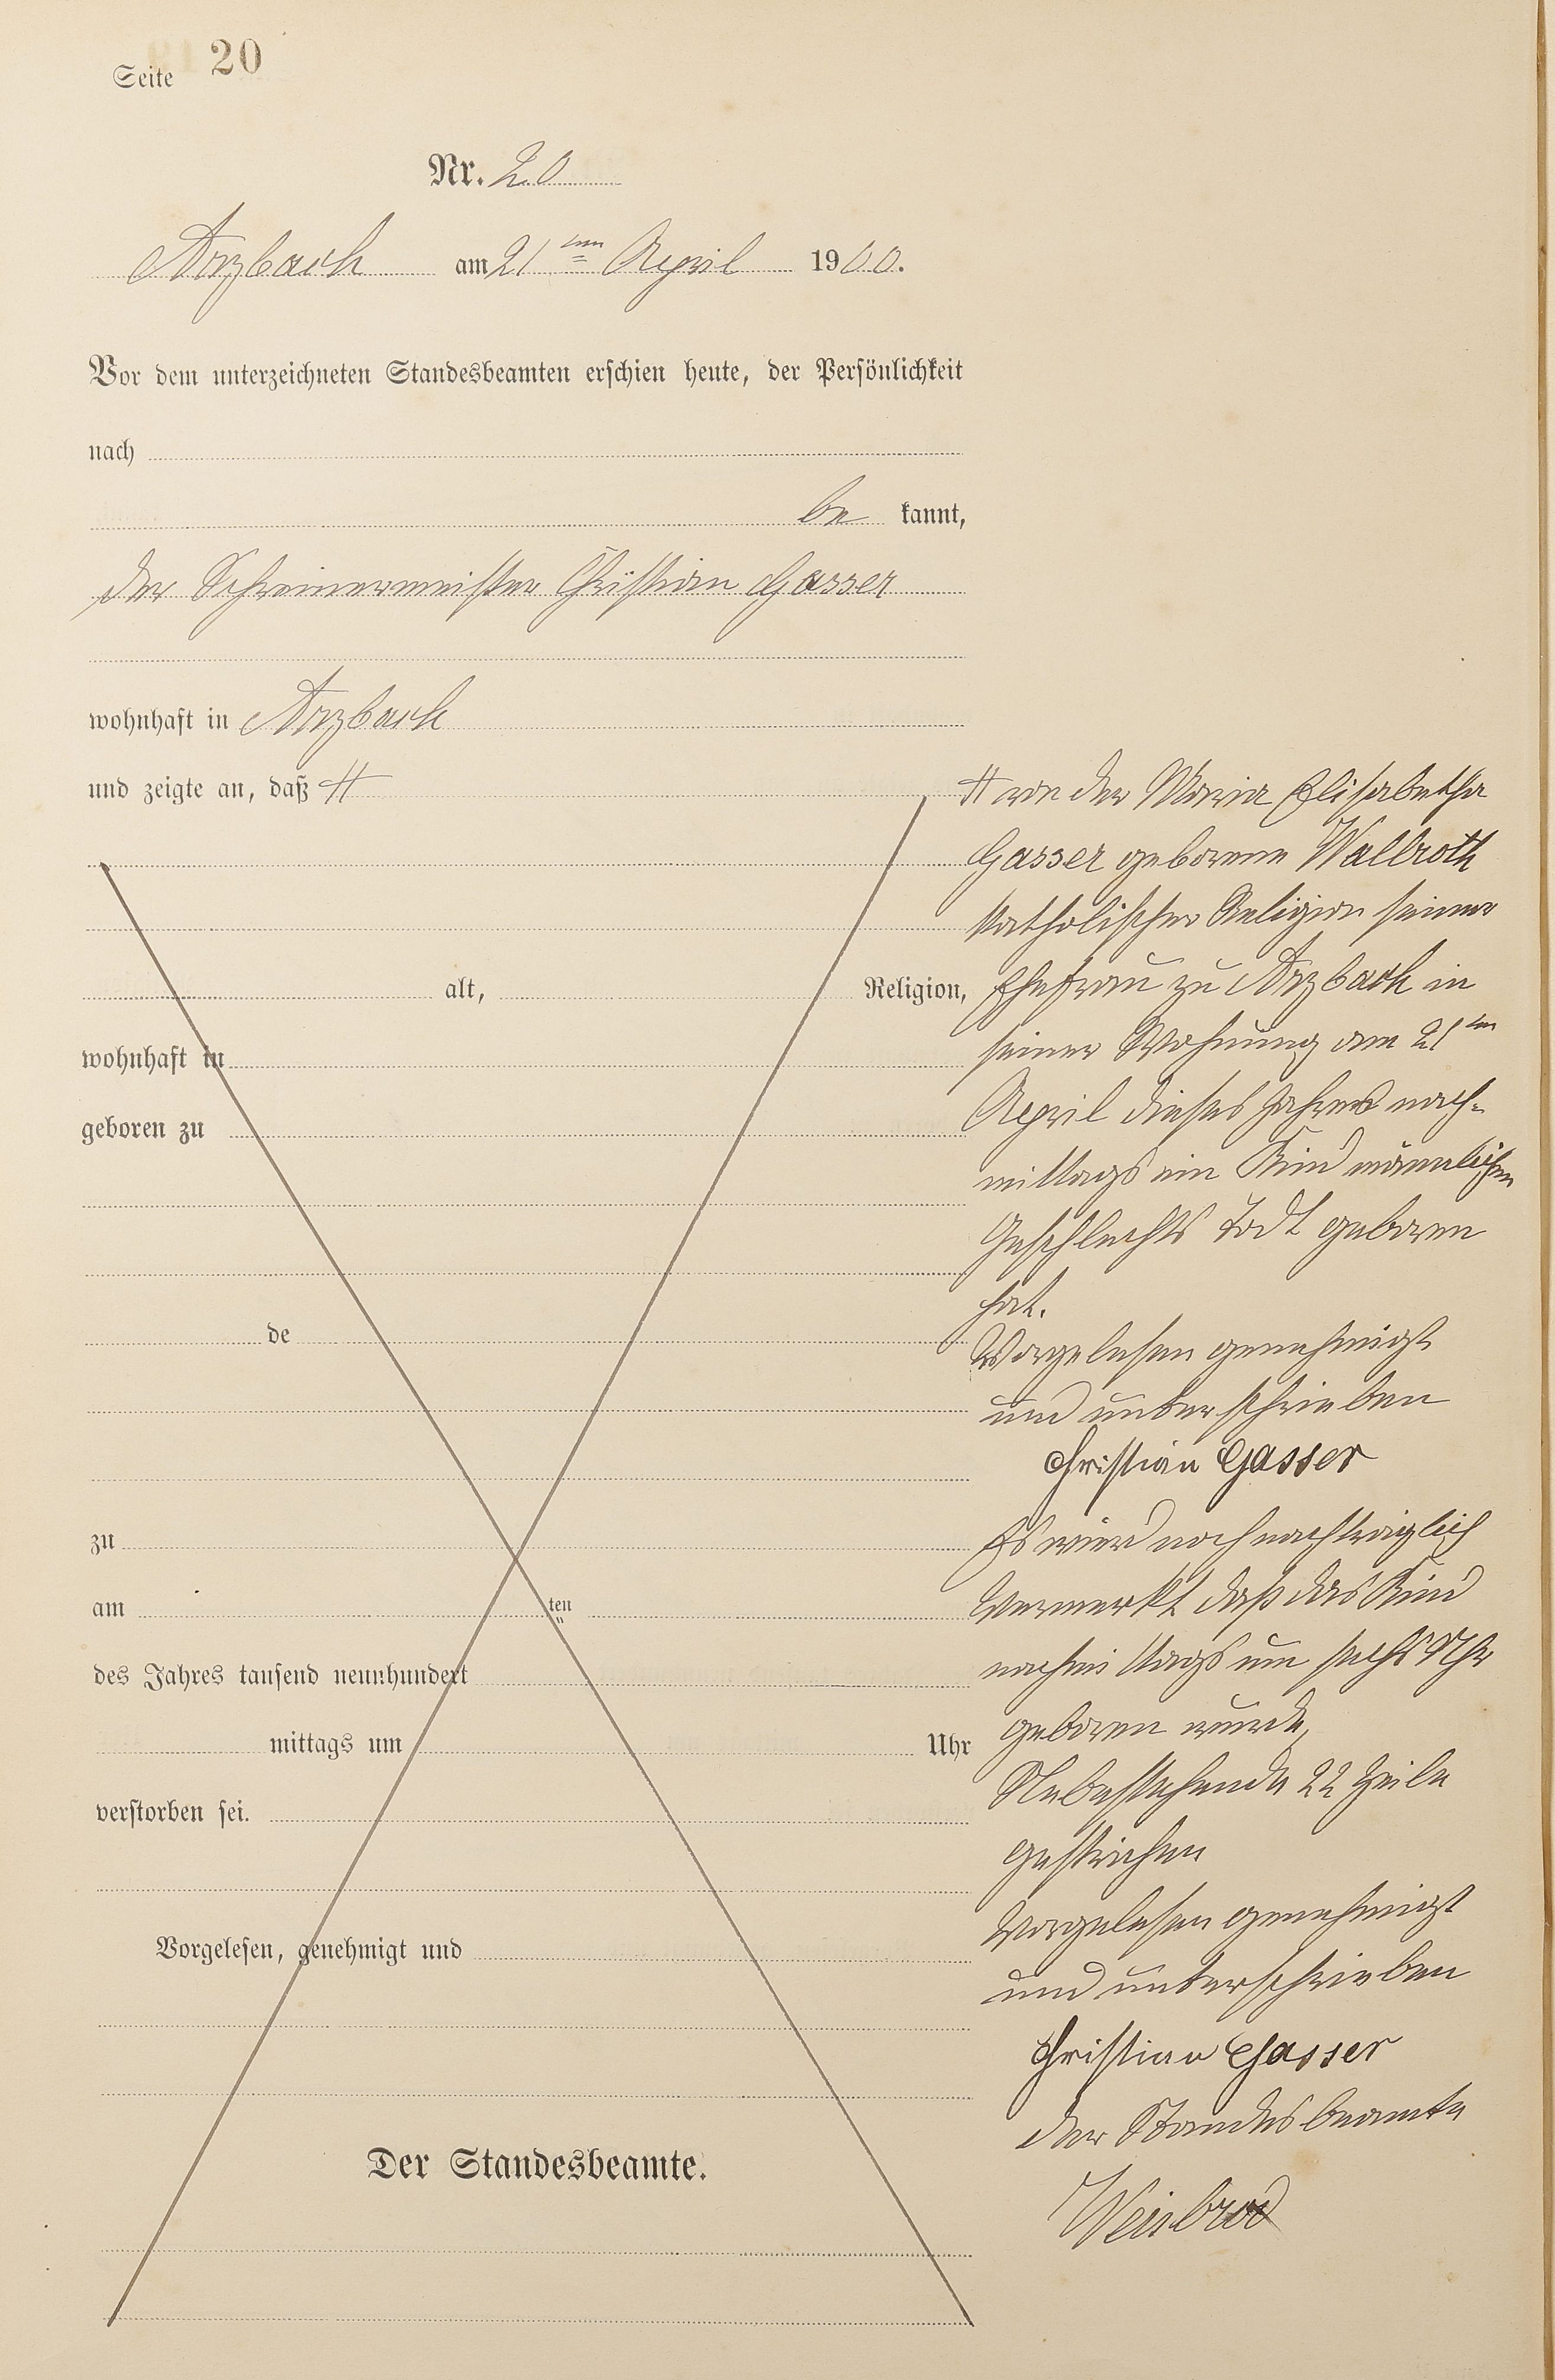 Seite 20
Nr. 20
Arzbach am 21ten April 1900.
Vor dem unterzeichneten Standesbeamten erschien heute, der Persönlichkeit
nach
be kannt,
der Schreinermeister Christian Gasser
wohnhaft in Arzbach
und zeigte an, daß #
# von der Maria Elisabetha
Gasser geborene Wallroth
katholischer Religion seiner
Ehefrau zu Arzbach in
seiner Wohnung am 21ten
April dieses Jahres nach-
mittags ein Kind männlichen
Geschlechts todt geboren
hat.
Vorgelesen genehmigt
und unterschrieben
Christian Gasser
Es wird noch nachträglich
Vermerkt daß das Kind
nachmittags um sechs Uhr
geboren wurde,
Nebestehende 22 Zeile
gestrichen
Vorgelesen genehmigt
und unterschrieben
Christian Gasser
der Standesbeamte
Weinbrod
alt, Religion,
wohnhaft in
geboren zu
de
zu
am ten
des Jahres tausend neunhundert
mittags um Uhr
verstorben sei.
Vorgelesen, genehmigt und
Der Standesbeamte.